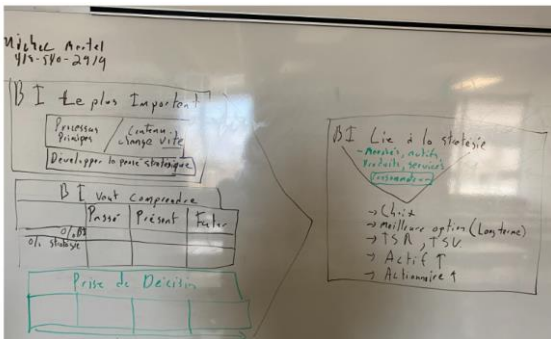 Michel Martel
418-540-2919
BI Le plus Important
Processus
Principes
Contenu
change vite
Développer la pensé stratégique
BI veut comprendre
Passé Présent Futur
0% BI
0% stratégie
Prise de Décision
BI Liée à la stratégie
- Marchés, outils,
Produits, services
Consommateur
→ Choix
→ meilleure option (Long terme)
→ TSR, TSV
→ Actif ↑
→ Actionnaire ↑